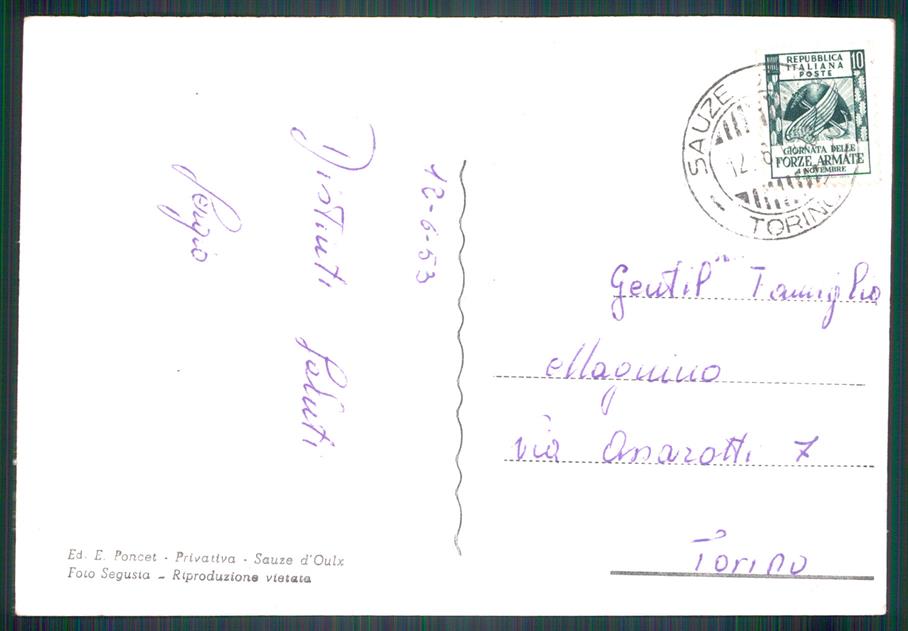 12-6-53
Distinti Saluti
Sergio
Ed. E. Poncet - Privativa - Sauze d'Oulx
Foto Segusia - Riproduzione vietata
REPUBBLICA
ITALIANA
POSTE
10
GIORNATA DELLE
FORZE ARMATE
4 NOVEMBRE
SAUZE
12. 6
TORINO
Gentil.ma Famiglia
Magnino
via Assarotti 7
Torino